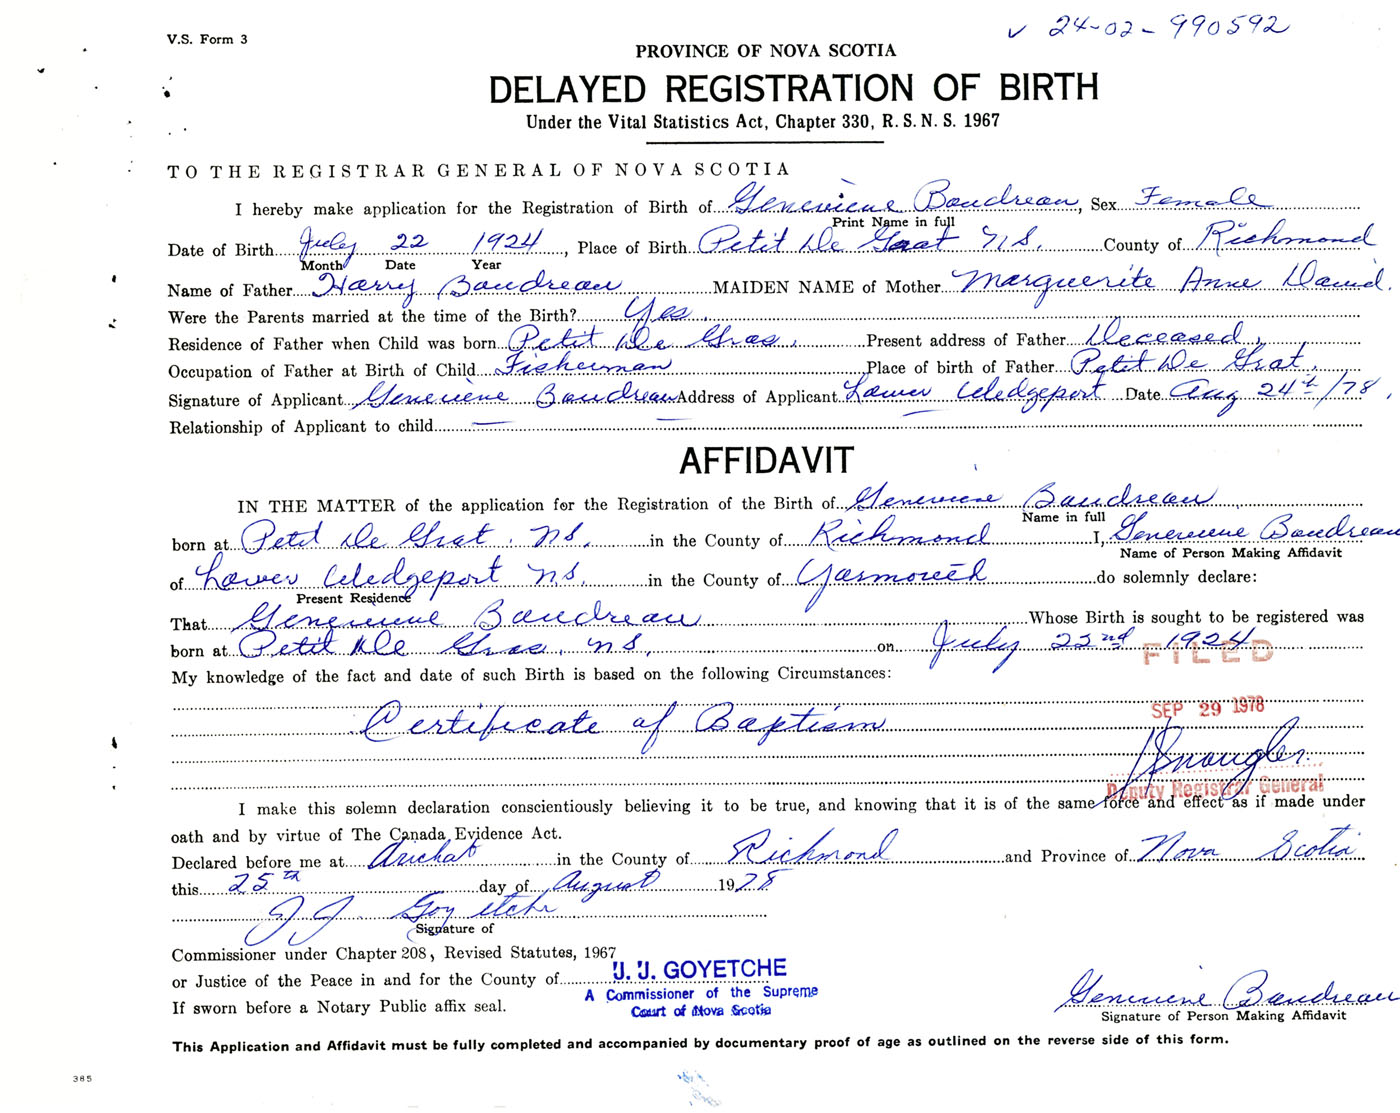 V.S. Form 3
✓ 24-02-990592
PROVINCE OF NOVA SCOTIA
DELAYED REGISTRATION OF BIRTH
Under the Vital Statistics Act, Chapter 330, R. S. N. S. 1967
TO THE REGISTRAR GENERAL OF NOVA SCOTIA
I hereby make application for the Registration of Birth of Genevieve Boudreau, Sex Female
Print Name in full
Date of Birth July 22 1924, Place of Birth Petit De Grat N.S. County of Richmond
Month Date Year
Name of Father Harry Boudreau MAIDEN NAME of Mother Marguerite Anne David.
Were the Parents married at the time of the Birth? Yes.
Residence of Father when Child was born Petit De Gras. Present address of Father Deceased.
Occupation of Father at Birth of Child Fisherman Place of birth of Father Petit De Grat.
Signature of Applicant Genevieve Boudreau Address of Applicant Lower Wedgeport Date Aug 24th/78.
Relationship of Applicant to child —
AFFIDAVIT
IN THE MATTER of the application for the Registration of the Birth of Genevieve Boudreau
Name in full
born at Petit De Grat. N.S. in the County of Richmond I, Genevieve Boudreau
Name of Person Making Affidavit
of Lower Wedgeport N.S. in the County of Yarmouth do solemnly declare:
Present Residence
That Genevieve Boudreau Whose Birth is sought to be registered was
born at Petit De Gras. N.S. on July 22nd 1924
FILED
My knowledge of the fact and date of such Birth is based on the following Circumstances:
SEP 29 1978
Certificate of Baptism
Deputy Registrar General
I make this solemn declaration conscientiously believing it to be true, and knowing that it is of the same force and effect as if made under
oath and by virtue of The Canada Evidence Act.
Declared before me at Arichat in the County of Richmond and Province of Nova Scotia
this 25th day of August 1978
J J Goyetche
Signature of
Commissioner under Chapter 208, Revised Statutes, 1967
or Justice of the Peace in and for the County of J. J. GOYETCHE
A Commissioner of the Supreme
Court of Nova Scotia
If sworn before a Notary Public affix seal.
Genevieve Boudreau
Signature of Person Making Affidavit
This Application and Affidavit must be fully completed and accompanied by documentary proof of age as outlined on the reverse side of this form.
385